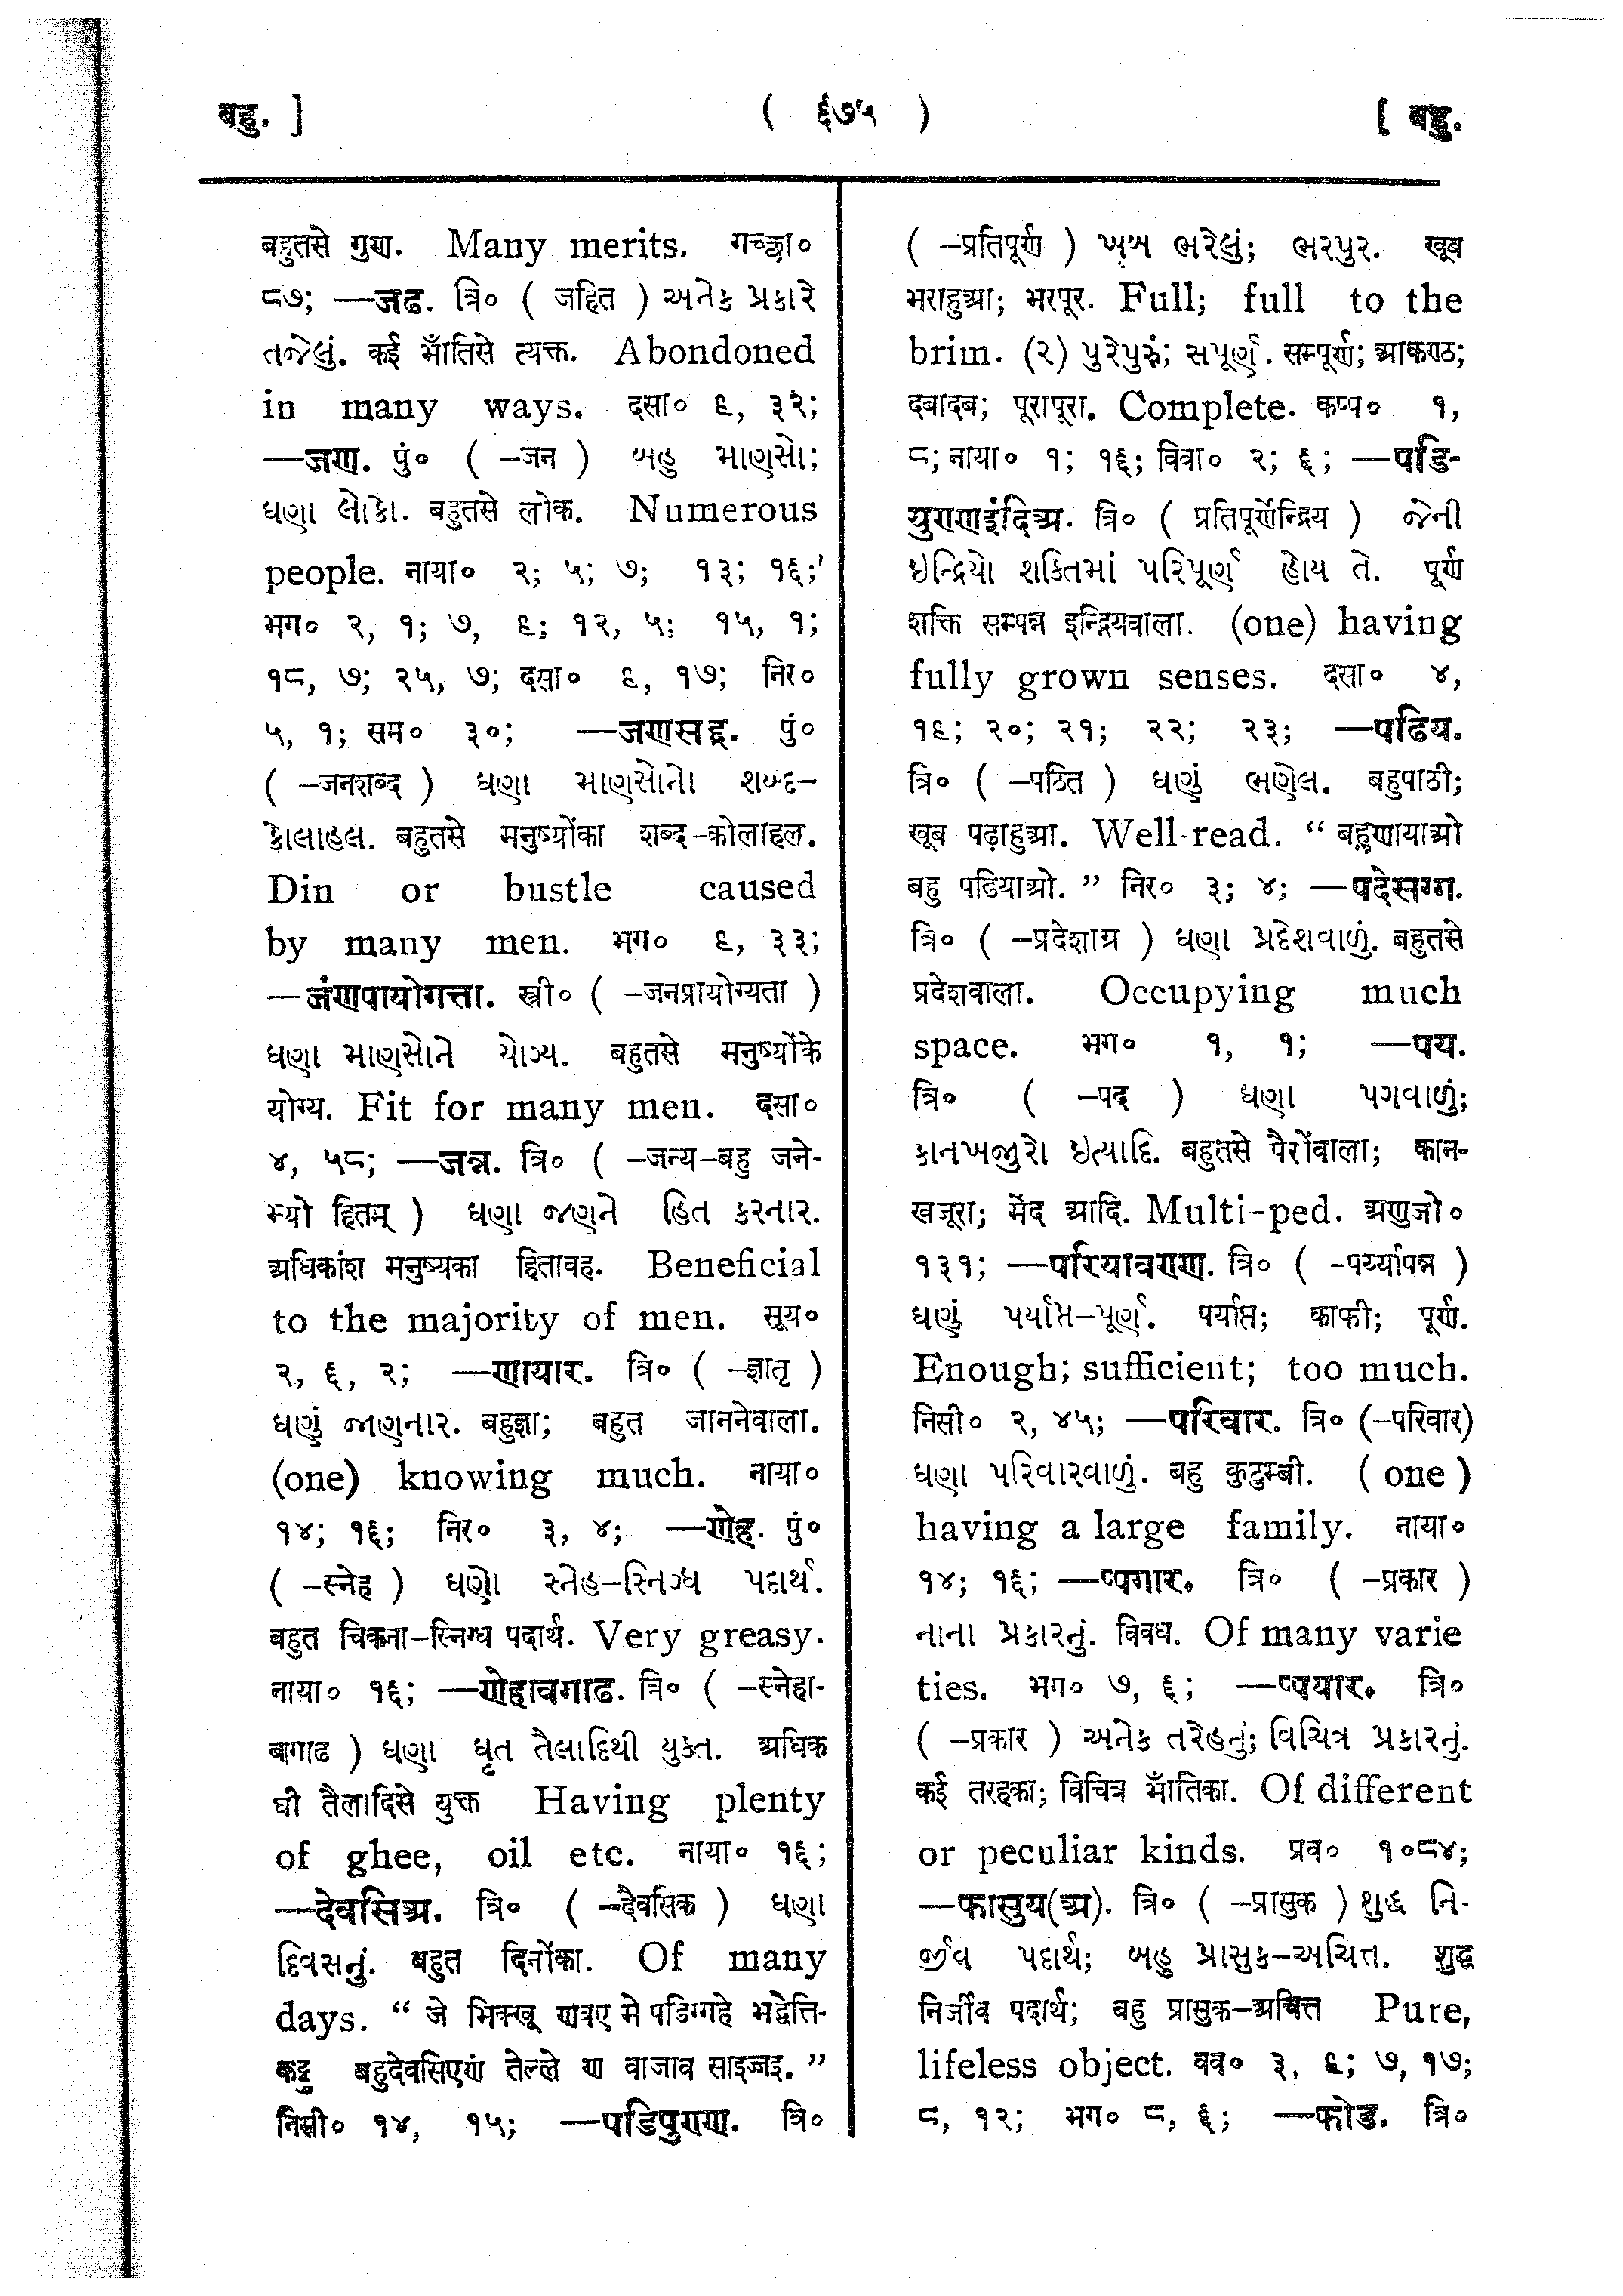 बहु. ]
( ६७५ )
[ बहु.
बहुतसे गुण. Many merits. गच्छा०
८७; —जढ. त्रि० ( जहित ) અનેક પ્રકારે
તજેલું. कई भाँतिसे त्यक्त. Abondoned
in many ways. दसा० ६, ३२;
—जण. पुं० ( –जन ) બહુ માણસો;
ઘણા લોકો. बहुतसे लोक. Numerous
people. नाया० २; ५; ७; १३; १६;
भग० २, १; ७, ६; १२, ५; १५, १;
१८, ७; २५, ७; दसा० ६, १७; निर०
५, १; सम० ३०; —जणसद्द. पुं०
( –जनशब्द ) ઘણા માણસોનો શબ્દ–
કોલાહલ. बहुतसे मनुष्योंका शब्द–कोलाहल.
Din or bustle caused
by many men. भग० ६, ३३;
—जंणपायोगत्ता. स्त्री० ( –जनप्रायोग्यता )
ઘણા માણસોને યોગ્ય. बहुतसे मनुष्योंके
योग्य. Fit for many men. दसा०
४, ५८; —जन्न. त्रि० ( –जन्य–बहु जने-
भ्यो हितम् ) ઘણા જણને હિત કરનાર.
अधिकांश मनुष्यका हितावह. Beneficial
to the majority of men. सूय०
२, ६, २; —णायार. त्रि० ( –ज्ञातृ )
ઘણું જાણનાર. बहुज्ञा; बहुत जाननेवाला.
(one) knowing much. नाया०
१४; १६; निर० ३, ४; —णेह. पुं०
( –स्नेह ) ઘણો સ્નેહ–સ્નિગ્ધ પદાર્થ.
बहुत चिकना–स्निग्ध पदार्थ. Very greasy.
नाया० १६; —णेहावगाढ. त्रि० ( –स्नेहा-
बागाढ ) ઘણા ઘૃત તૈલાદિથી યુક્ત. अधिक
घी तैलादिसे युक्त Having plenty
of ghee, oil etc. नाया० १६;
—देवसिअ. त्रि० ( –दैवसिक ) ઘણા
દિવસનું. बहुत दिनोंका. Of many
days. “ जे भिक्खू णवए मे पडिग्गहे भद्वेत्ति-
कट्टु बहुदेवसिएणं तेल्ले ण वाजाव साइज्जइ. ”
निसी० १४, १५; —पडिपुण्ण. त्रि०
( –प्रतिपूर्ण ) ખૂબ ભરેલું; ભરપુર. खूब
भराहुआ; भरपूर. Full; full to the
brim. (२) પુરેપુરું; સપૂર્ણ. सम्पूर्ण; आकण्ठ;
दबादब; पूरापूरा. Complete. कप्प० १,
८; नाया० १; १६; विवा० २; ६; —पडि-
युण्णइंदिअ. त्रि० ( प्रतिपूर्णेन्द्रिय ) જેની
ઇન્દ્રિયો શક્તિમાં પરિપૂર્ણ હોય તે. पूर्ण
शक्ति सम्पन्न इन्द्रियवाला. (one) having
fully grown senses. दसा० ४,
१६; २०; २१; २२; २३; —पढिय.
त्रि० ( –पठित ) ઘણું ભણેલ. बहुपाठी;
खूब पढ़ाहुआ. Well-read. “ बहूणायाओ
बहु पढियाओ. ” निर० ३; ४; —पदेसग्ग.
त्रि० ( –प्रदेशाग्र ) ઘણા પ્રદેશવાળું. बहुतसे
प्रदेशवाला. Occupying much
space. भग० १, १; —पय.
त्रि० ( –पद ) ઘણા પગવાળું;
કાનખજુરો ઇત્યાદિ. बहुतसे पैरोंवाला; कान-
खजूरा; मेंद आदि. Multi-ped. अणुजो०
१३१; —परियावण्ण. त्रि० ( –पर्य्यापन्न )
ઘણું પર્યાપ્ત–પૂર્ણ. पर्याप्त; काफी; पूर्ण.
Enough; sufficient; too much.
निसी० २, ४५; —परिवार. त्रि० (–परिवार)
ઘણા પરિવારવાળું. बहु कुटुम्बी. ( one )
having a large family. नाया०
१४; १६; —प्पगार. त्रि० ( –प्रकार )
નાના પ્રકારનું. विवध. Of many varie
ties. भग० ७, ६; —प्पयार. त्रि०
( –प्रकार ) અનેક તરેહનું; વિચિત્ર પ્રકારનું.
कई तरहका; विचित्र भाँतिका. Of different
or peculiar kinds. प्रव० १०८४;
—फासुय(अ). त्रि० ( –प्रासुक ) શુદ્ધ નિ-
ર્જીવ પદાર્થ; બહુ પ્રાસુક–અચિત્ત. शुद्ध
निर्जीव पदार्थ; बहु प्रासुक–अचित्त Pure,
lifeless object. वव० ३, ६; ७, १७;
८, १२; भग० ८, ६; —फोड. त्रि०